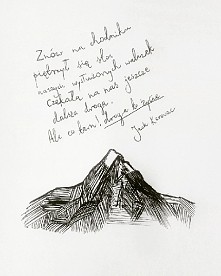 Znów na chodniku
piętrzył się stos
naszych wytłuszonych walizek
czekała na nas jeszcze
dalsza droga.
Ale co tam! droga to życie
Jack Kerouac